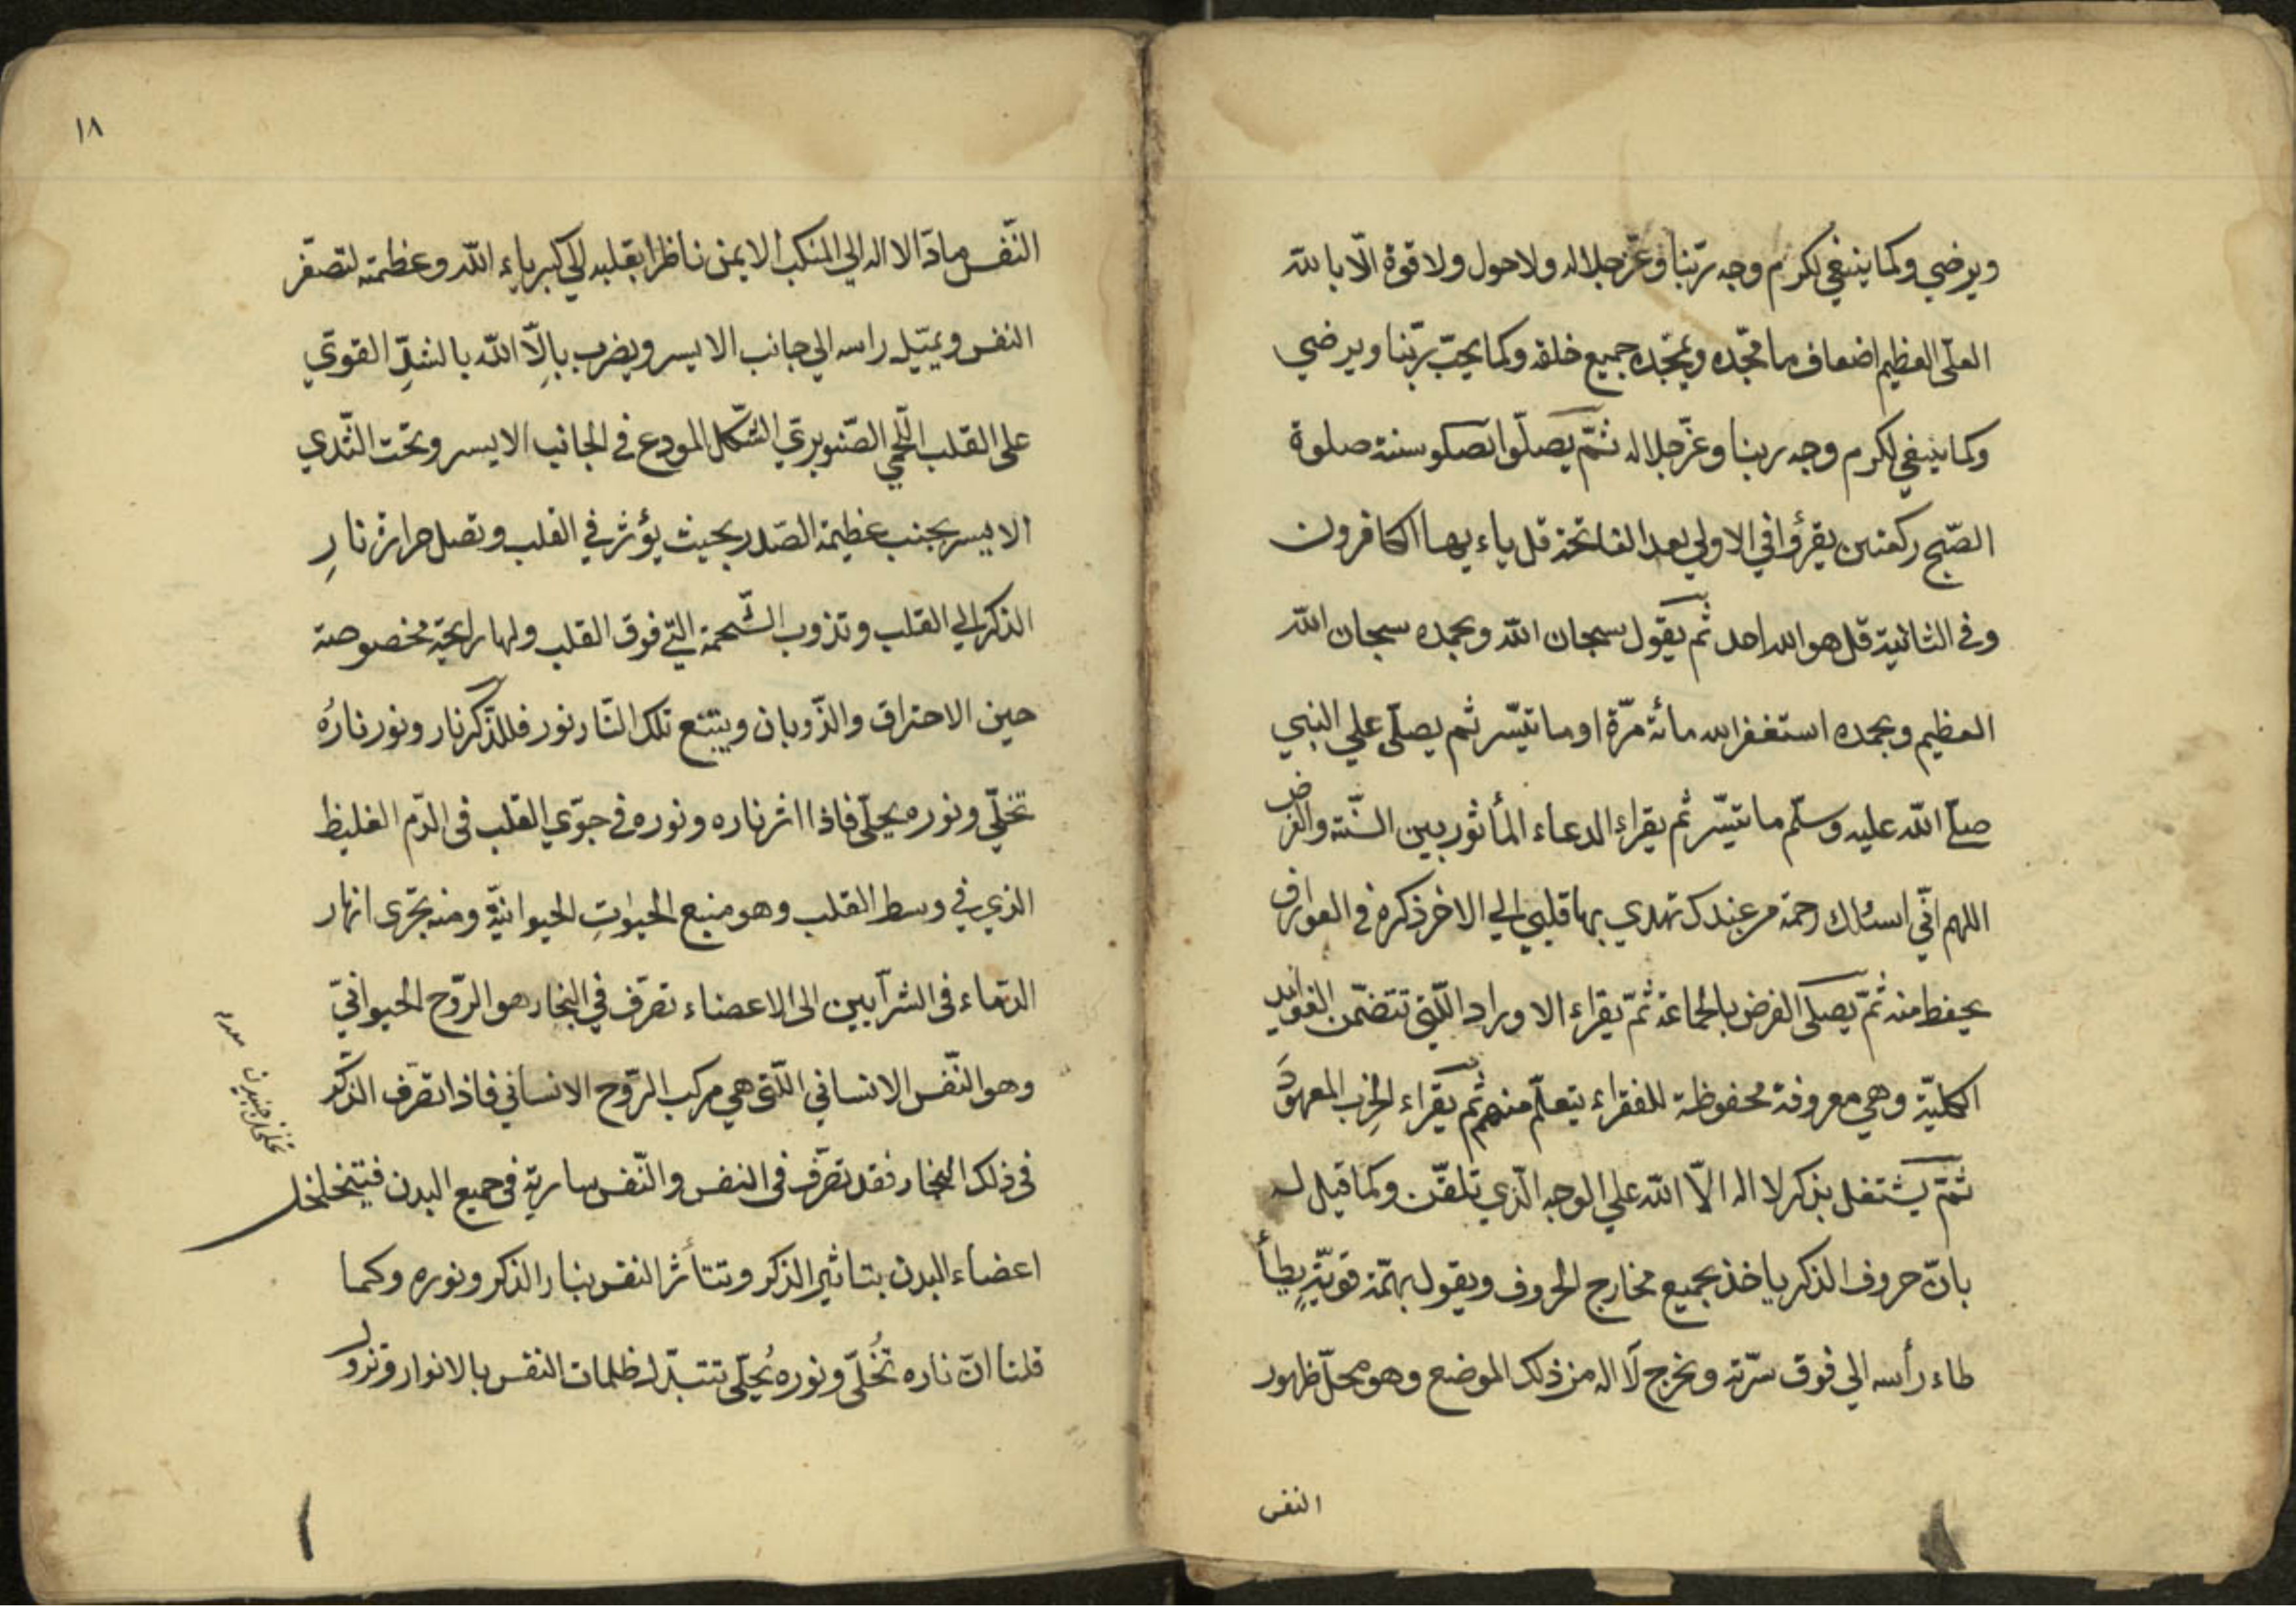 ويرضي وكما ينبغي لكرم وجه ربّنا وعزّ جلاله ولا حول ولا قوة الّا بالله
العليّ العظيم اضعاف ما مجّده ويمجّده جميع خلقه وكما يحبّ ربّنا ويرضي
وكما ينبغي لكرم وجه ربنا وعزّ جلاله ثمّ يصلّوا سنة صلوة
الصّبح ركعتين يقرؤا في الاولي بعد الفاتحة قل ياءيها الكافرون
وفي الثانية قل هو الله احد ثم يقول سبحان الله وبحمده سبحان الله
العظيم وبحمده استغفر الله مائة مرّة او ما تيسّر ثم يصلّي علي النبي
صلّي الله عليه وسلّم ما تيسّر ثم يقراء الدعاء المأثور بين السّنة والفرض
اللهم انّي اسئلك رحمة من عندك تهدي بها قلبي الي الاخر ذكره في العوارف
يحفظ منه ثمّ يصلّي الفرض بالجماعة ثمّ يقراء الاوراد الّلتي تتضمّن الفوايد
الكليّة وهي معروفة محفوظة للفقراء يتعلّم منهم ثم يقراء الحزب المعهود
ثمّ يشتغل بذكر لا اله الاّ الله علي الوجه الّذي تلقّن وكما قيل له
بانّ حروف الذكر ياخذ بجميع مخارج الحروف ويقول بهمّة قويّةٍ يطأ
طاء رأسه الي فوق سرّته ويخرج لا اله من ذلك الموضع وهو محلّ ظهور
النفس
١٨
النّفس مادّا لا اله الي المنكب الايمن ناظرا بقلبه الي كبرياء الله وعظمته لتصغر
النفس ويميّل راسه الي جانب الايسر ويضرب بالِاّ الله بالشدِّ القويّ
علي القلب اللّحمي الصّنوبريّ الشّكل المودع في الجانب الايسر وتحت الثّدي
الايسر بجنب عظيمة الصّدر بحيث يؤثر في القلب وتصل حرارة نارِ
الذكر الي القلب وتذوب الشّحمة الّتي فوق القلب ولها رايحة مخصوصة
حين الاحتراق والذّوبان ويتبع تلك النّار نور فللذّكر نار ونور نارُه
تخلّي ونوره يحلّي فاذا اثر ناره ونوره في جوّي القلب في الدّم الغليظ
الذي في وسط القلب وهو منبع الحيوتِ الحيوانيّة ومنه تجري انهار
الدّماء في الشرآيين الي الاعضاء تصرّف في البخار هو الرّوح الحيوانيّ
وهو النّفس الانساني الّلتي هي مركب الرّوح الانساني فاذا تصرّف الذكر
في ذلك البخار فقد تصرّف في النفس والنّفس سارية في جميع البدن فيتخلخل
اعضاء البدن بتاثير الذكر وتتأثر النفس بنار الذكر ونوره وكما
قلنا انّ ناره تُخلّي ونوره يُحلّي تتبدّل ظلمات النفس بالانوار وتزول